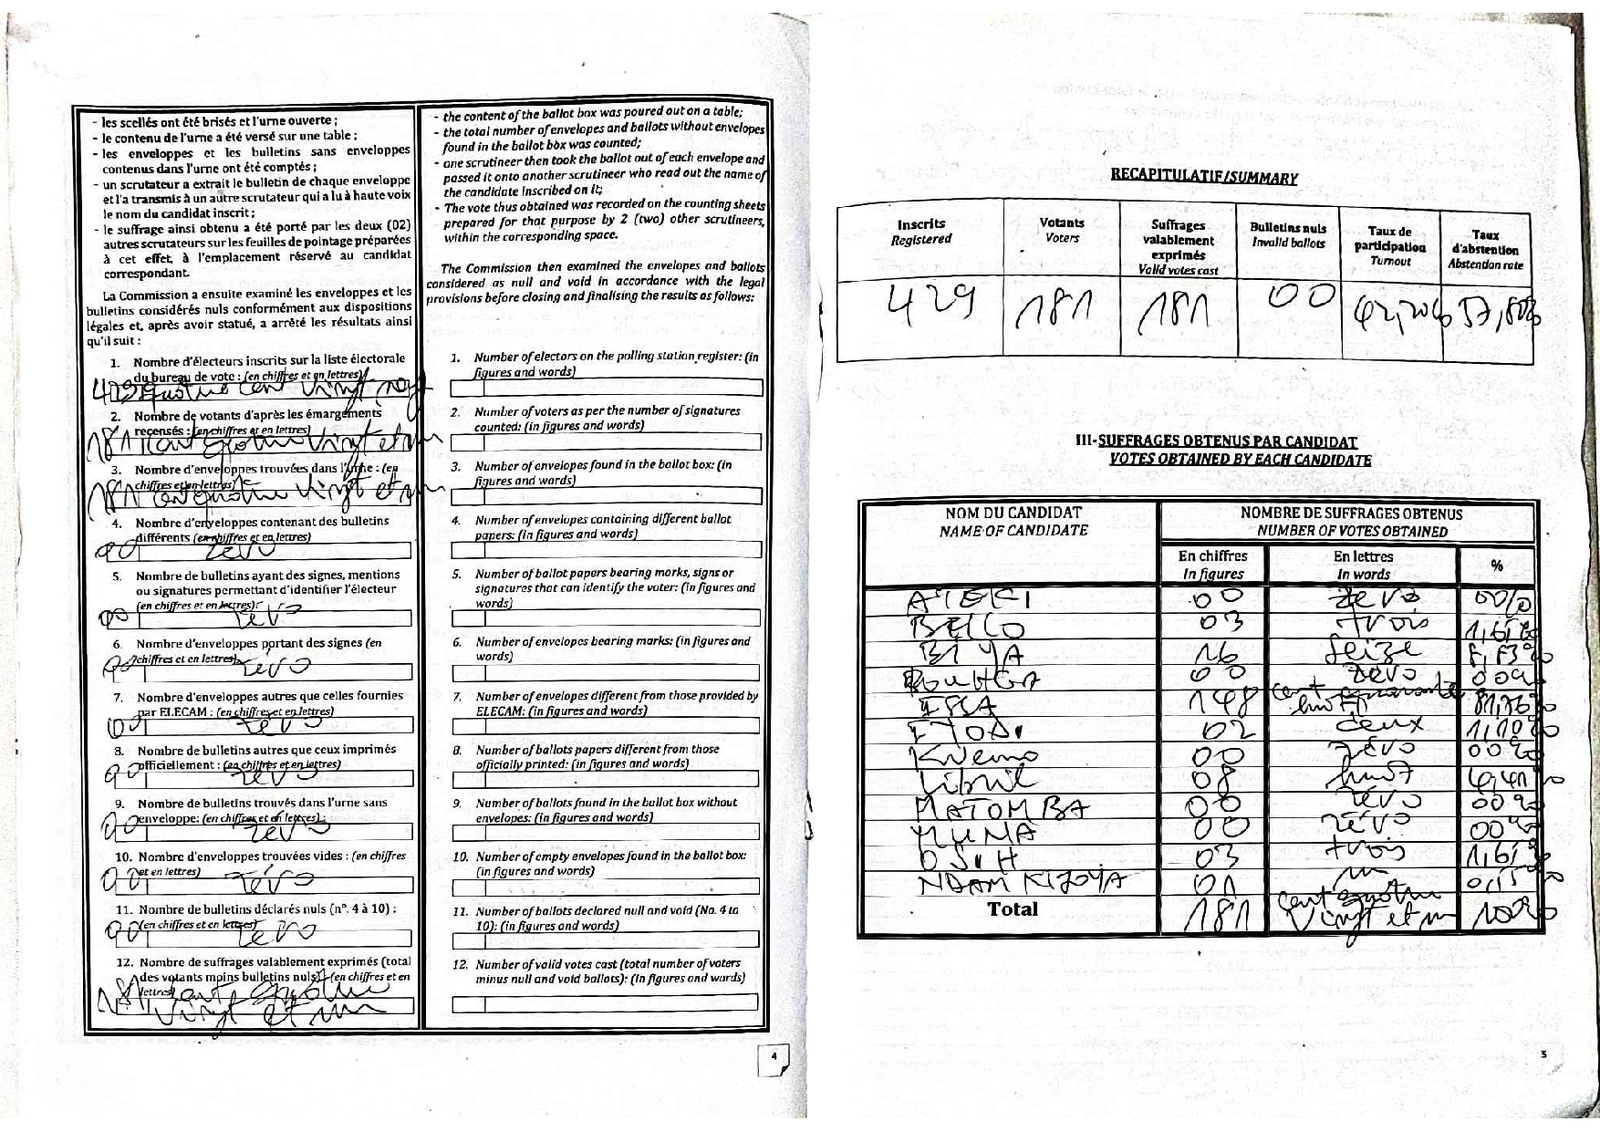 - les scellés ont été brisés et l'urne ouverte ;
- le contenu de l'urne a été versé sur une table ;
- les enveloppes et les bulletins sans enveloppes
contenus dans l'urne ont été comptés ;
- un scrutateur a extrait le bulletin de chaque enveloppe
et l'a transmis à un autre scrutateur qui a lu à haute voix
le nom du candidat inscrit ;
- le suffrage ainsi obtenu a été porté par les deux (02)
autres scrutateurs sur les feuilles de pointage préparées
à cet effet, à l'emplacement réservé au candidat
correspondant.
La Commission a ensuite examiné les enveloppes et les
bulletins considérés nuls conformément aux dispositions
légales et, après avoir statué, a arrêté les résultats ainsi
qu'il suit :
1. Nombre d'électeurs inscrits sur la liste électorale
du bureau de vote : (en chiffres et en lettres)
429 quatre cent vingt neuf
2. Nombre de votants d'après les émargements
recensés : (en chiffres et en lettres)
181 cent quatre vingt et un
3. Nombre d'enveloppes trouvées dans l'urne : (en
chiffres et en lettres)
181 cent quatre vingt et un
4. Nombre d'enveloppes contenant des bulletins
différents (en chiffres et en lettres)
00 zéro
5. Nombre de bulletins ayant des signes, mentions
ou signatures permettant d'identifier l'électeur
(en chiffres et en lettres):
00 zéro
6. Nombre d'enveloppes portant des signes (en
chiffres et en lettres)
00 zéro
7. Nombre d'enveloppes autres que celles fournies
par ELECAM : (en chiffres et en lettres)
00 zéro
8. Nombre de bulletins autres que ceux imprimés
officiellement : (en chiffres et en lettres)
00 zéro
9. Nombre de bulletins trouvés dans l'urne sans
enveloppe: (en chiffres et en lettres) :
00 zéro
10. Nombre d'enveloppes trouvées vides : (en chiffres
et en lettres)
00 zéro
11. Nombre de bulletins déclarés nuls (n°. 4 à 10) :
(en chiffres et en lettres)
00 zéro
12. Nombre de suffrages valablement exprimés (total
des votants moins bulletins nuls) (en chiffres et en
lettres)
181 cent quatre
vingt et un
- the content of the ballot box was poured out on a table;
- the total number of envelopes and ballots without envelopes
found in the ballot box was counted;
- one scrutineer then took the ballot out of each envelope and
passed it onto another scrutineer who read out the name of
the candidate inscribed on it;
- The vote thus obtained was recorded on the counting sheets
prepared for that purpose by 2 (two) other scrutineers,
within the corresponding space.
The Commission then examined the envelopes and ballots
considered as null and void in accordance with the legal
provisions before closing and finalising the results as follows:
1. Number of electors on the polling station register: (in
figures and words)
2. Number of voters as per the number of signatures
counted: (in figures and words)
3. Number of envelopes found in the ballot box: (in
figures and words)
4. Number of envelopes containing different ballot
papers: (in figures and words)
5. Number of ballot papers bearing marks, signs or
signatures that can identify the voter: (in figures and
words)
6. Number of envelopes bearing marks: (in figures and
words)
7. Number of envelopes different from those provided by
ELECAM: (in figures and words)
8. Number of ballots papers different from those
officially printed: (in figures and words)
9. Number of ballots found in the ballot box without
envelopes: (in figures and words)
10. Number of empty envelopes found in the ballot box:
(in figures and words)
11. Number of ballots declared null and void (No. 4 to
10): (in figures and words)
12. Number of valid votes cast (total number of voters
minus null and void ballots): (in figures and words)
4
RECAPITULATIF/SUMMARY
Inscrits Registered
Votants Voters
Suffrages valablement exprimés Valid votes cast
Bulletins nuls Invalid ballots
Taux de participation Turnout
Taux d'abstention Abstention rate
429 181 181 00 42,20% 57,80%
III-SUFFRAGES OBTENUS PAR CANDIDAT
VOTES OBTAINED BY EACH CANDIDATE
NOM DU CANDIDAT NOMBRE DE SUFFRAGES OBTENUS
NAME OF CANDIDATE NUMBER OF VOTES OBTAINED
En chiffres En lettres %
In figures In words
ATEKI 00 zéro 00%
BELLO 03 trois
BIYA 16 seize
00 zéro 00%
ISSA 148 cent quarante huit 81,76%
02 deux 1,10%
Kwemo 00 zéro 00%
Libiii 08 huit 4,41%
MATOMBA 00 zéro 00%
MUNA 00 zéro 00%
OSIH 03 trois
NDAM NJOYA 01 un
Total 181 cent quatre vingt et un 100%
5